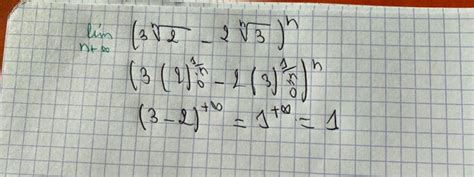 lim n→+∞ (3 ⁿ√2 - 2 ⁿ√3)ⁿ
(3 (2)^(1/n → 0) - 2 (3)^(1/n → 0))ⁿ
(3 - 2)^+∞ = 1^+∞ = 1